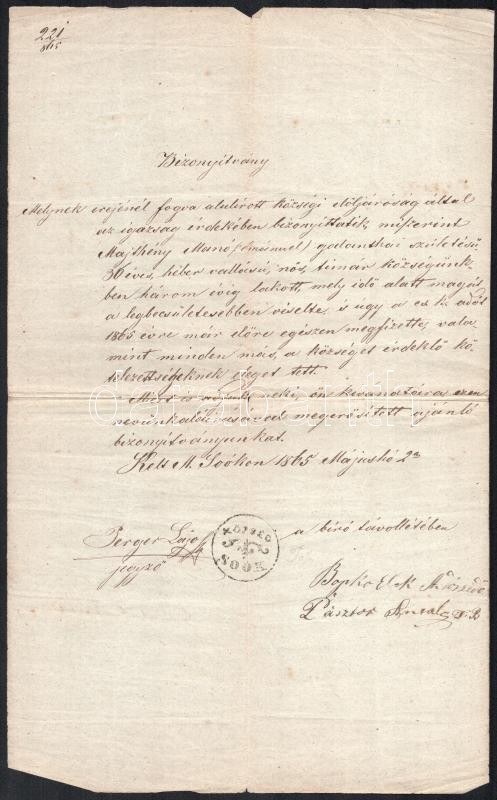 221
865
Bizonyitvány
Melynek erejénél fogva alulirott községi elöljáróság által
az igazság érdekében bizonyittatik miszerint
Majthény Manó (Emánuel) galanthai születésü
36 éves, héber vallású, nős, timár községünk-
ben három évig lakott, mely idő alatt magát
a legbecsületesebben viselte, is ugy a cs. k. adót
1865 évre már előre egészen megfizette, vala-
mint minden más, a községet érdeklő kö-
telezettségeknek eleget tett.
Miért is adjuk neki, ön kivánatára ezen
nevünk aláirásával megerősitett ajánló
bizonyitványunkat.
Kelt M. Soókon 1865 Májushó 2án
a biró távollétében
Perger Lajos
jegyző
KÖZSÉG
SOÓK
Pásztor